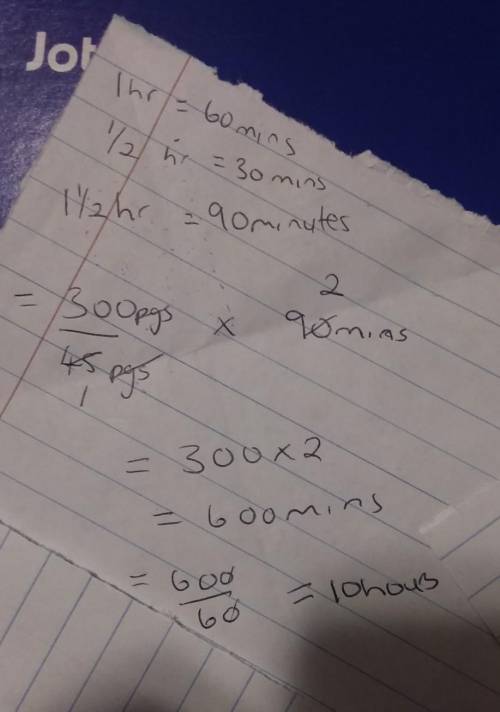 Jot
1hr = 60mins
1/2 hr = 30mins
1 1/2 hr = 90minutes
= 300pgs/45 pgs x 90mins
1 2
= 300 x 2
= 600mins
= 600/60 = 10hous